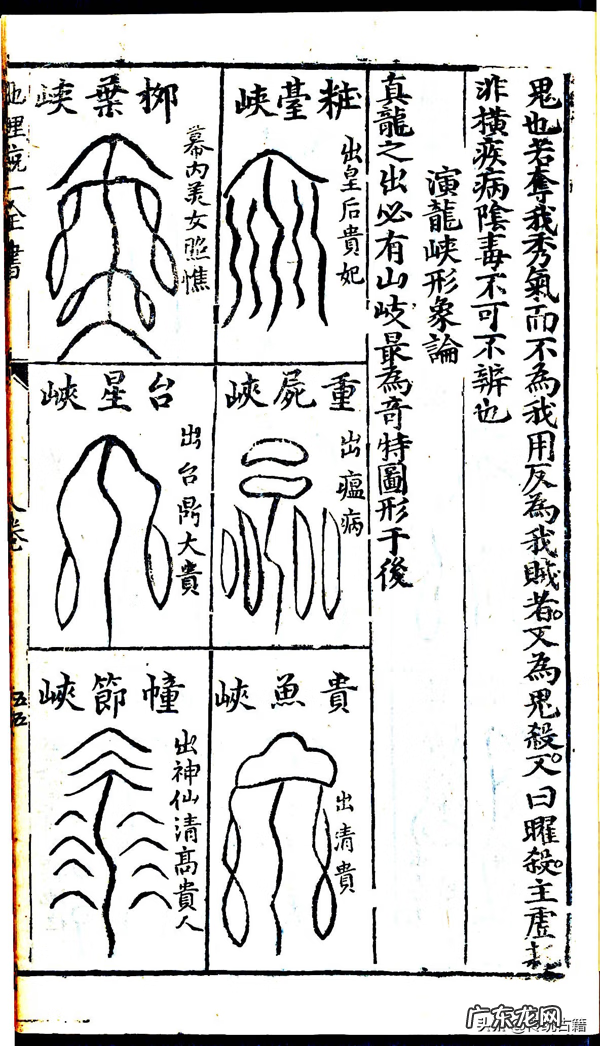 鬼也若奪我秀氣而不為我用反為我賊者又為鬼殺又曰曜殺主虛
非橫疾病陰毒不可不辨也
演龍峽形象論
真龍之出必有山岐最為奇特圖形于後
粧臺峽
出皇后貴妃
重屍峽
出瘟病
貴魚峽
出清貴
柳葉峽
幕內美女照憔
台星峽
出台鼎大貴
幢節峽
出神仙清高貴人
地理統一全書
五五
广东龙网